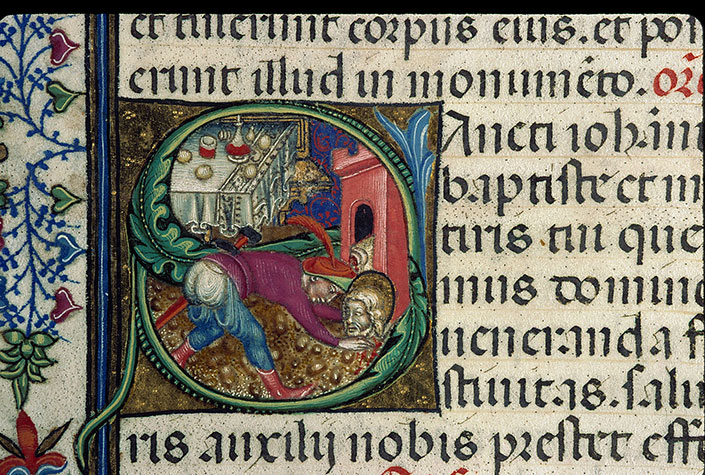 et tulerunt corpus eius. et po
erunt illud in monumēto. orē
Ancti iohan
baptiste et m
tiris tui que
mus domine
ueneranda f
stiuitas. salu
ris auxilij nobis prestet eff